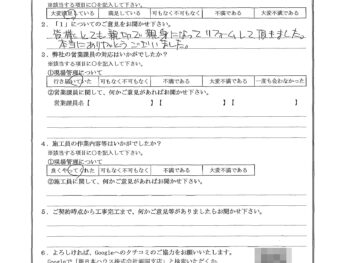 ※該当する項目に○を記入して下さい。
大変満足している 満足している 可も無く不可も無く 不満である 大変不満である
2.「1」についてのご意見をお聞かせ下さい。
皆様とても親切で親身になってリフォームして頂きました。
本当にありがとうございました。
3.弊社の営業課員の対応はいかがでしたか?
※該当する項目に○を記入して下さい。
①現場管理について
行き届いていた 可も無く不可も無く 不満である 大変不満である 一度も会わなかった
②営業課員に関して、何かご意見があればお聞かせ下さい。
営業課員名【 】【 】【 】
4.施工員の作業内容等はいかがでしたか?
※該当する項目に○を記入して下さい。
①現場管理について
良くやってくれた 可も無く不可も無く 不満である 大変不満である
②施工員に関して、何かご意見があればお聞かせ下さい。
5.ご契約時点から工事完工まで、何かご意見等がありましたらお聞かせ下さい。
6.よろしければ、Googleへのクチコミのご協力をお願いいたします。
Googleで「朝日ハウス株式会社福岡支店」と検索いただくか、